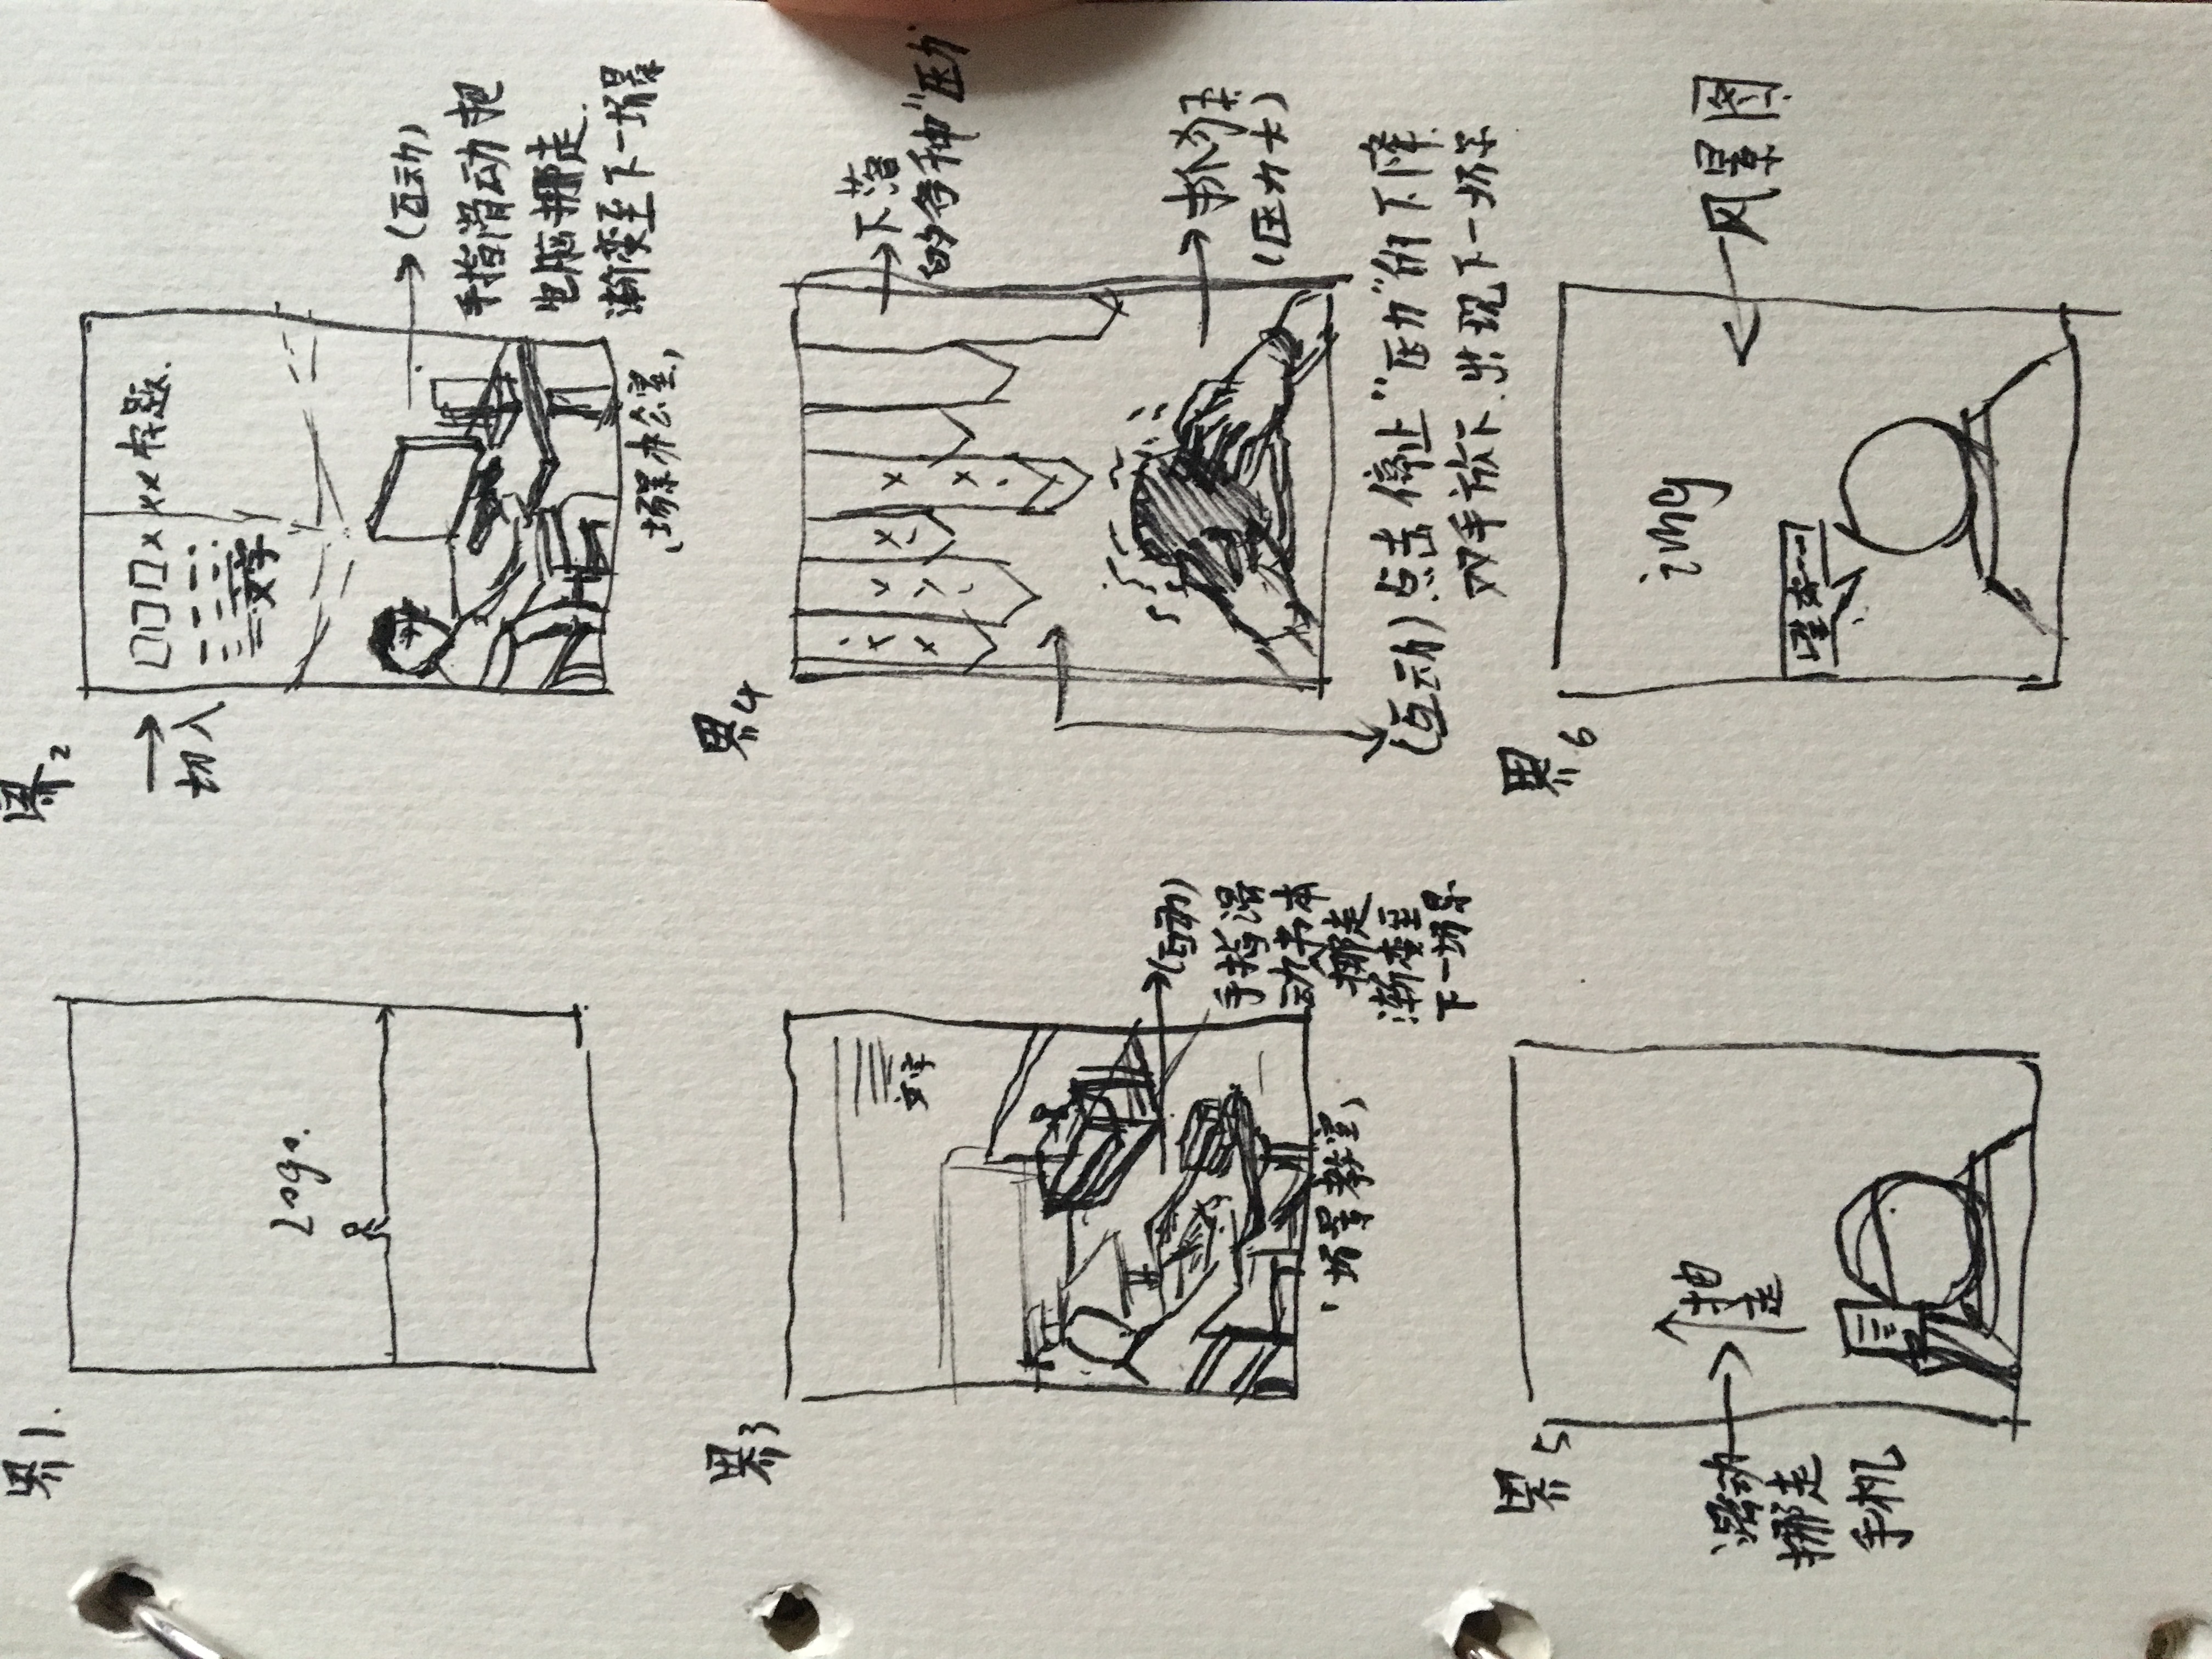 界1.
Logo.
界2
切入
□□□×××标题.
文字
(互动)
手指滑动把
电脑挪走.
渐变至下一场景
「场景办公室」
界3
文字
(互动)
手指滑
动书本
挪走
渐变至
下一场景
「场景教室」
界4
下落
的各种"压力"
抓狂
(压力大)
(互动)点击停止"压力"的下降
双手放下.出现下一场景
界5
抽走
滑动
挪走
手机
界6
img
风景图